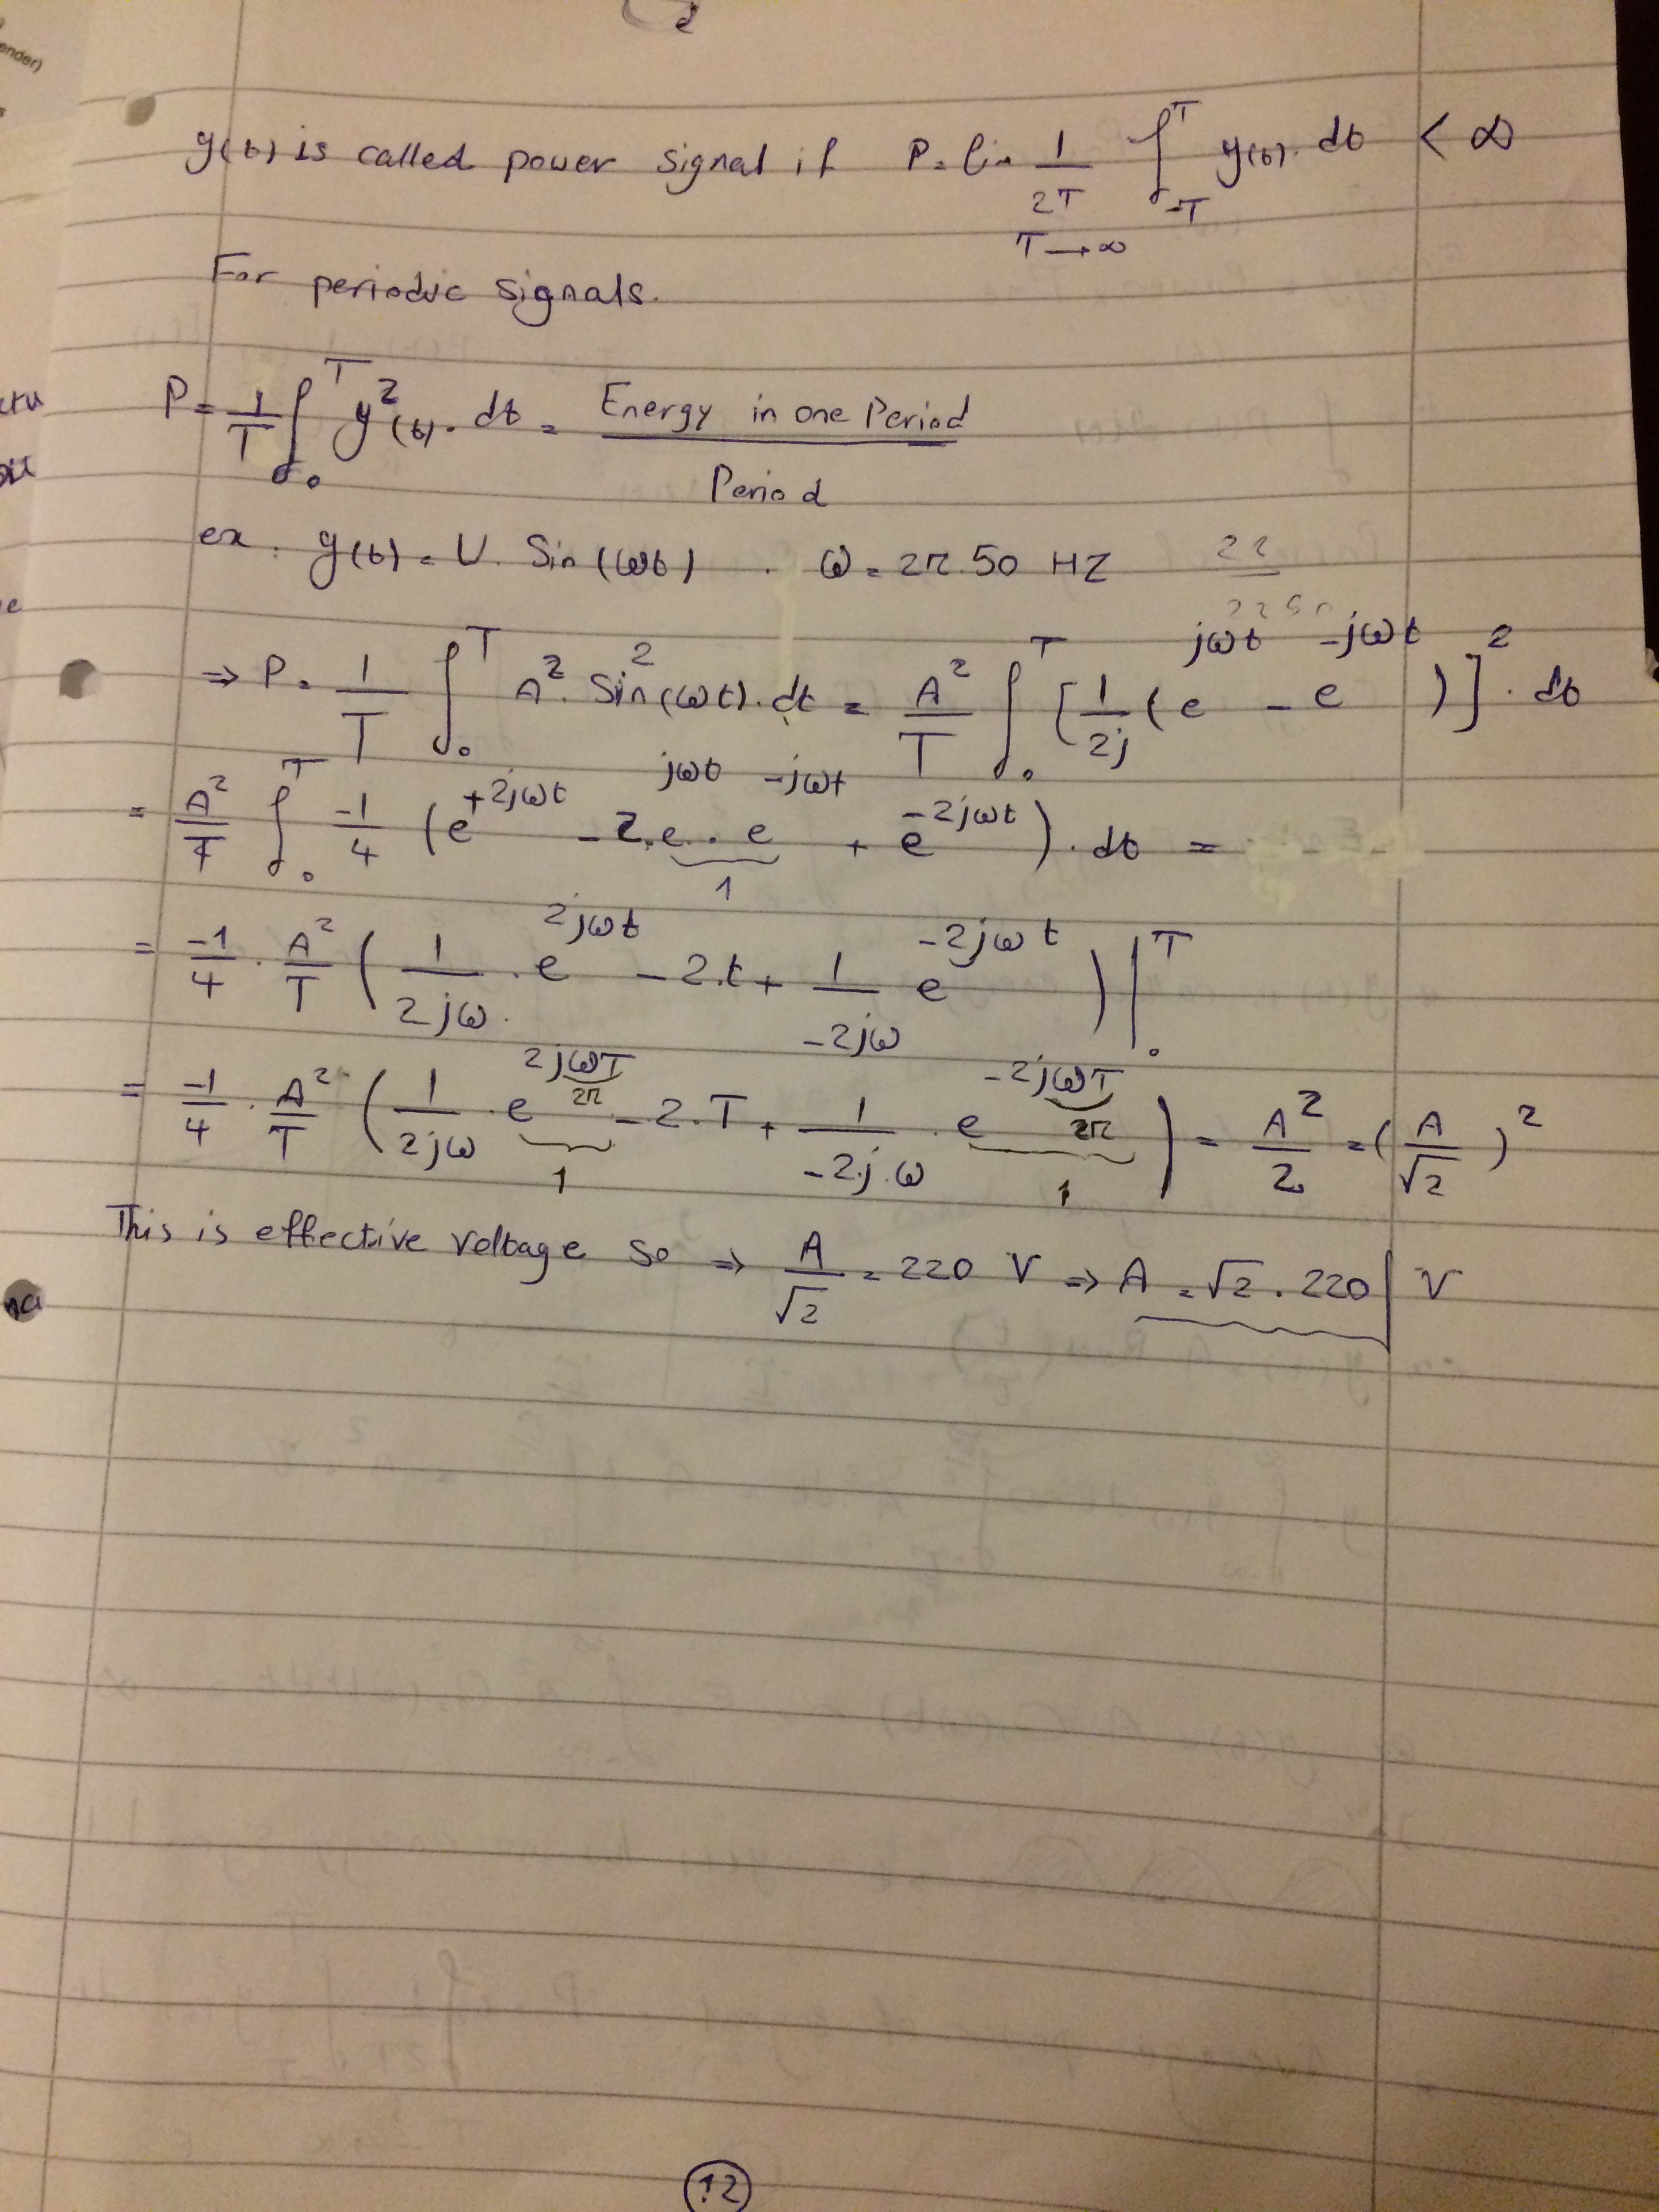 ender)
y(t) is called power signal if P = lim 1/2T ∫_{-T}^{T} y(t). dt < ∞
T → ∞
For periodic signals.
P = 1/T ∫_0^T y²(t). dt = Energy in one Period / Period
ex. y(t) = U. Sin(ωt) . ω = 2π.50 HZ 22
⇒ P = 1/T ∫_0^T A². Sin²(ωt). dt = A²/T ∫_0^T [1/2j (e^{jωt} - e^{-jωt})]² . dt
= A²/T ∫_0^T -1/4 (e^{+2jωt} - 2.e^{jωt} . e^{-jωt} + e^{-2jωt}). dt =
1
= -1/4 . A²/T (1/2jω . e^{2jωt} - 2.t + 1/-2jω e^{-2jωt}) |_0^T
= -1/4 . A²/T (1/2jω . e^{2jωT} - 2.T + 1/-2.j.ω . e^{-2jωT}) = A²/2 = (A/√2)²
2π 2π
1 1
This is effective voltage so ⇒ A/√2 = 220 V ⇒ A = √2 . 220 | V
12